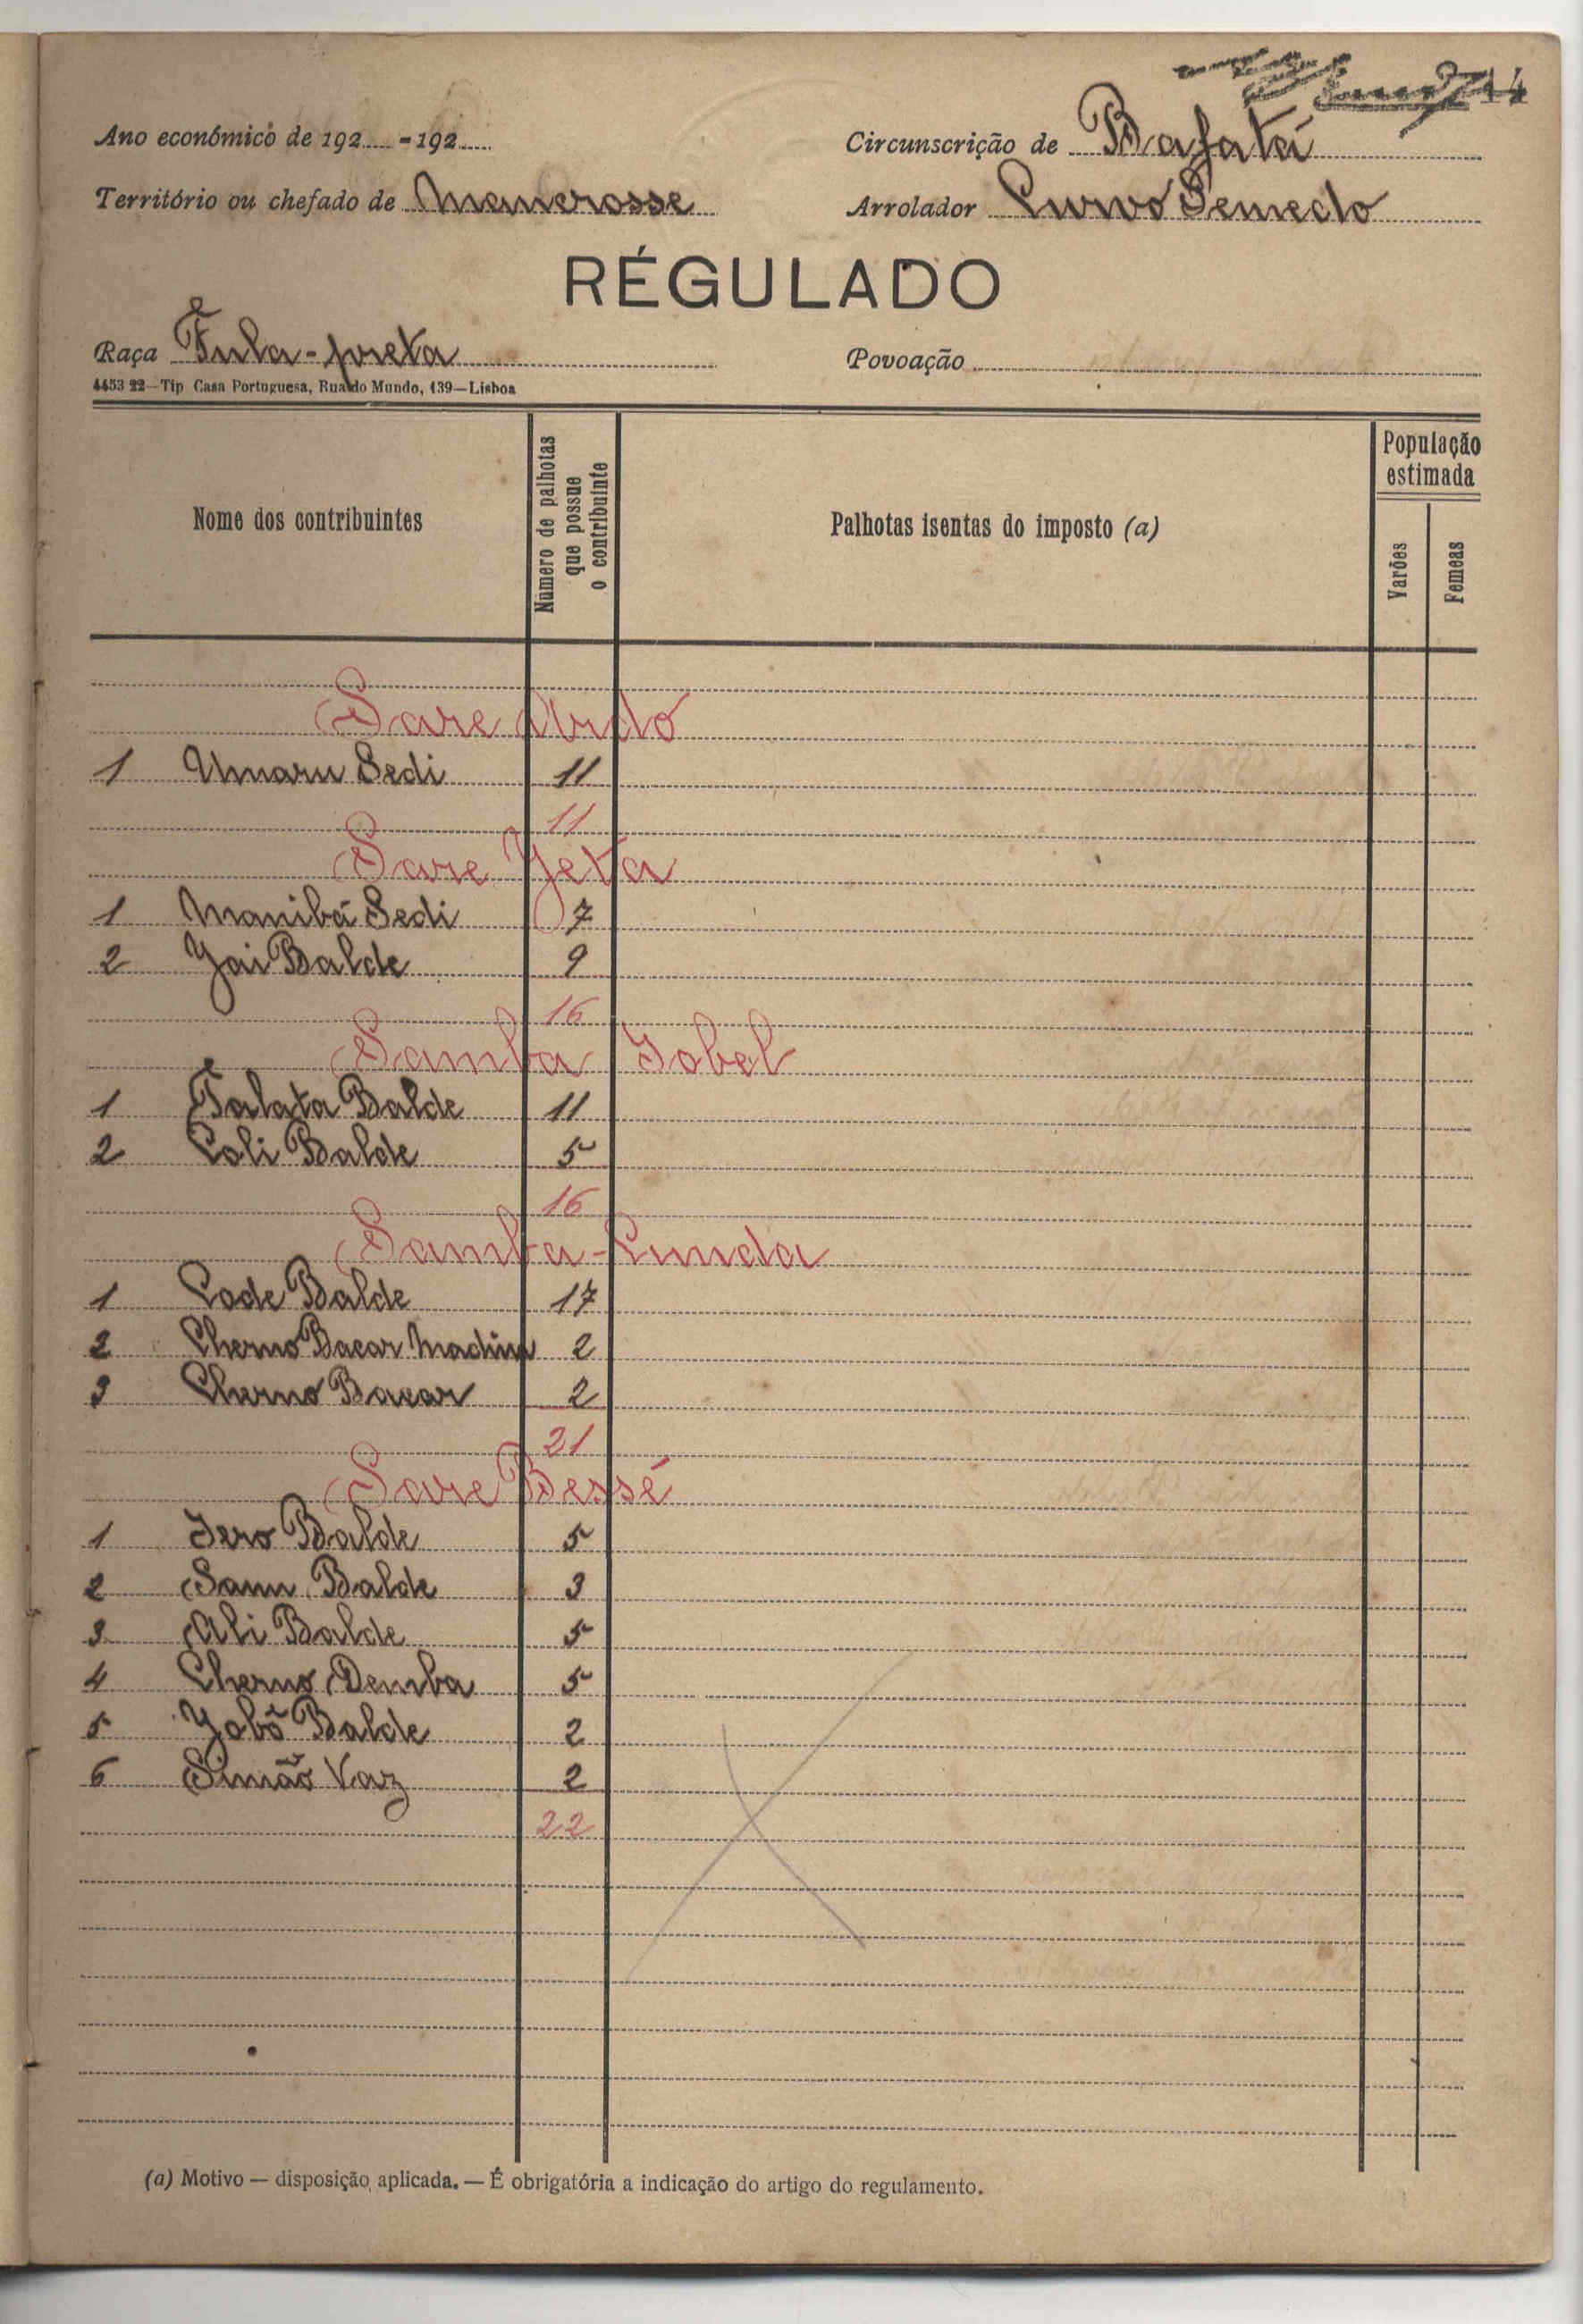 14
Ano económico de 192.....-192..... Circunscrição de Bafatá
Território ou chefado de Mancrosse Arrolador Curvo Semedo
RÉGULADO
Raça Fula-preta Povoação
4453 22—Tip Casa Portuguesa, Rua do Mundo, 139—Lisboa
Nome dos contribuintes Número de palhotas que possue o contribuinte Palhotas isentas do imposto (a) População estimada Varões Femeas
Sare Ardo
1 Umaru Sedi 11
11
Sare Yéta
1 Manibá Sedi 7
2 Yai Balde 9
16
Samba Jobel
1 Talata Balde 11
2 Coli Balde 5
16
Samba-Cunda
1 Code Balde 17
2 Cherno Bacar Madina 2
3 Cherno Bacar 2
21
Sare Bessé
1 Jero Balde 5
2 Sann Balde 3
3 Ali Balde 5
4 Cherno Demba 5
5 Yobô Balde 2
6 Simão Vaz 2
22
(a) Motivo — disposição aplicada. — É obrigatória a indicação do artigo do regulamento.